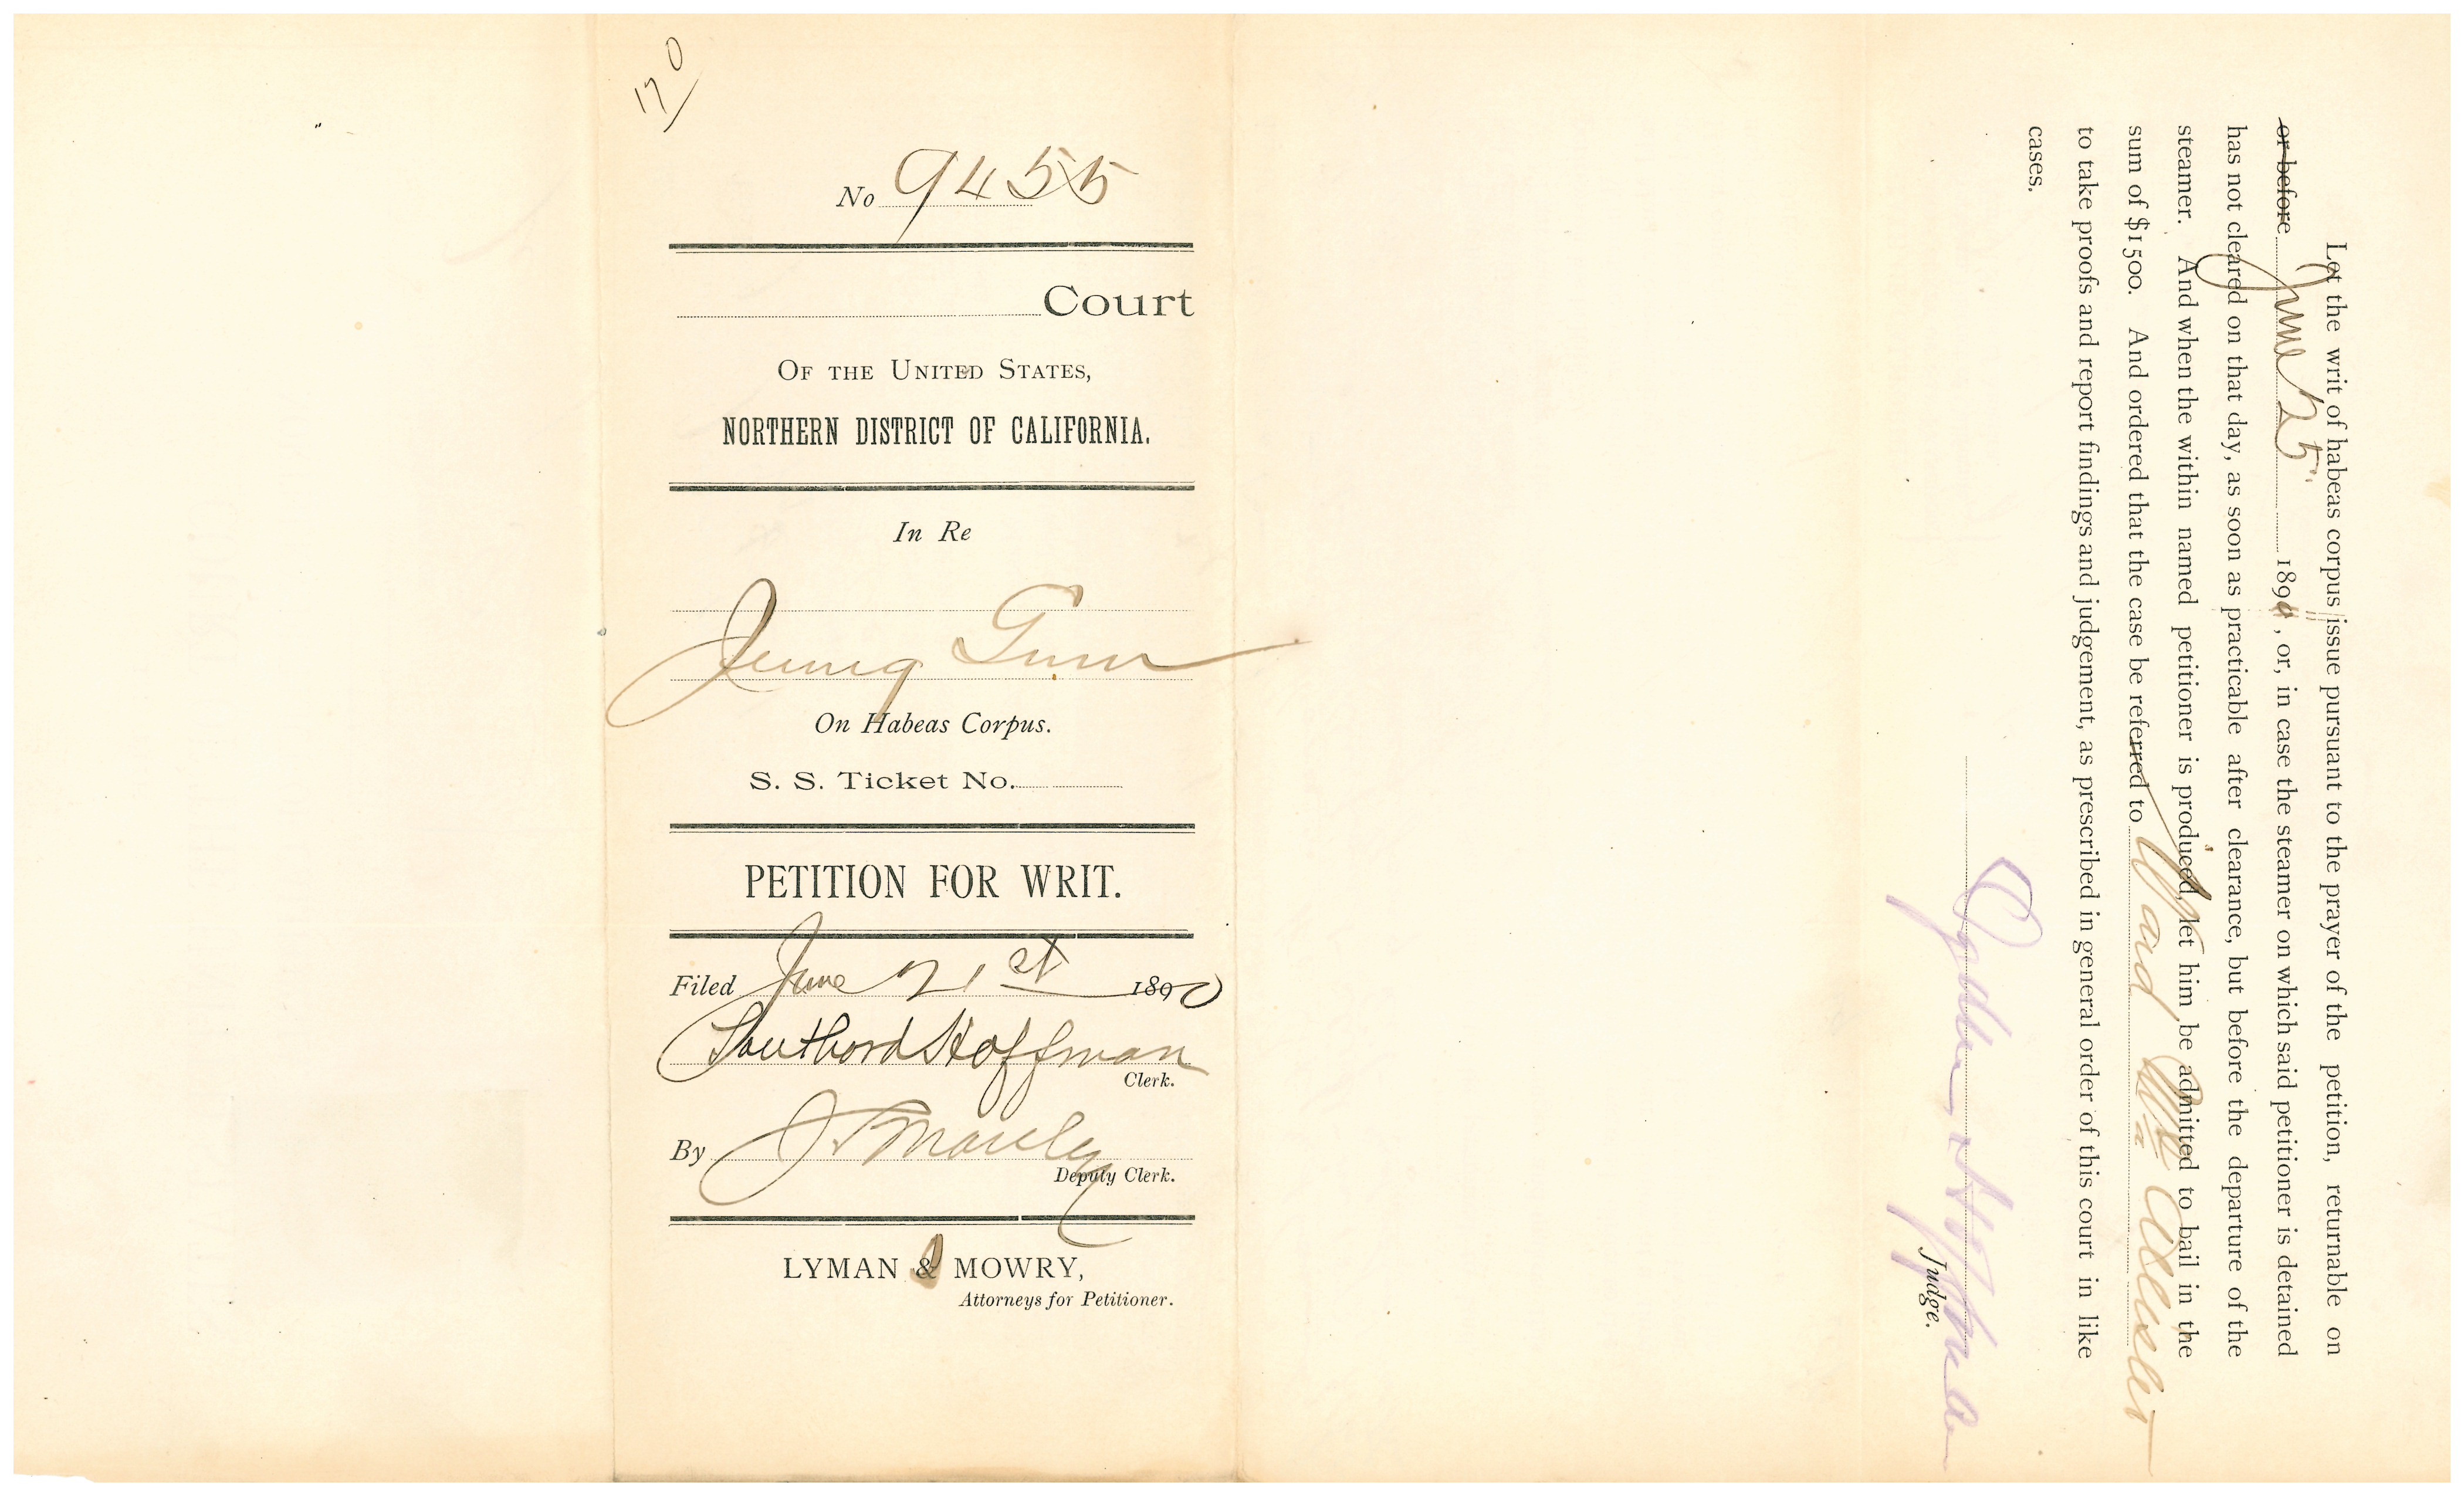 170
No 9455
Court
OF THE UNITED STATES,
NORTHERN DISTRICT OF CALIFORNIA.
In Re
Jung
On Habeas Corpus.
S. S. Ticket No.
PETITION FOR WRIT.
Filed June 21st 1890
Southard Hoffman
Clerk.
By
Deputy Clerk.
LYMAN & MOWRY,
Attorneys for Petitioner.
Let the writ of habeas corpus issue pursuant to the prayer of the petition, returnable on
or before June 25 1890, or, in case the steamer on which said petitioner is detained
has not cleared on that day, as soon as practicable after clearance, but before the departure of the
steamer. And when the within named petitioner is produced, let him be admitted to bail in the
sum of $1500. And ordered that the case be referred to Ward
to take proofs and report findings and judgement, as prescribed in general order of this court in like
cases.
Ogden Hoffman
Judge.